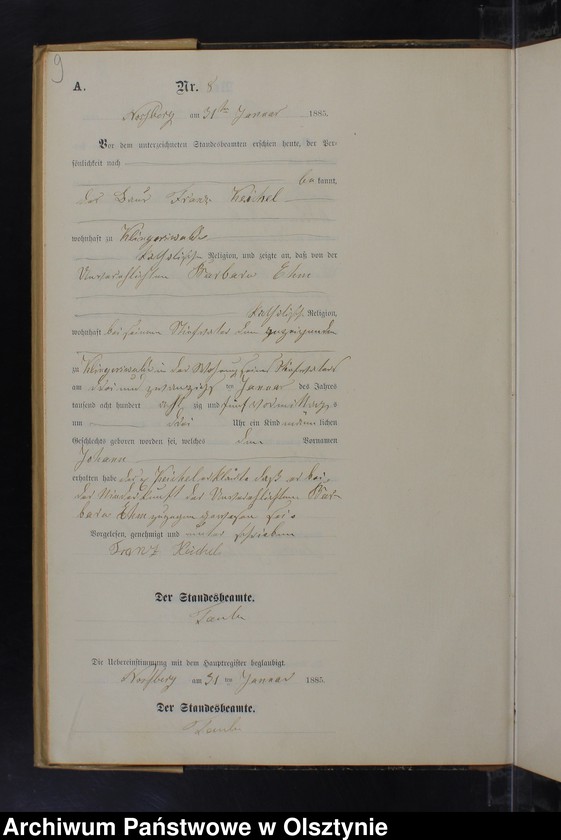 9
A. Nr. 8
Nossberg am 31ten Januar 1885.
Vor dem unterzeichneten Standesbeamten erschien heute, der Per-
sönlichkeit nach
be kannt,
der Bauer Franz Heichel
wohnhaft zu Klingerswalde
katholischer Religion, und zeigte an, daß von der
Unverehelichten Barbara Ehm
katholischer Religion,
wohnhaft bei seinem Stiefvater dem Anzeigenden
zu Klingerswalde in der Wohnung seines Stiefvaters
am drei und zwanzigsten Januar des Jahres
tausend acht hundert achtzig und fünf vormittags
um drei Uhr ein Kind männlichen
Geschlechts geboren worden sei, welches den Vornamen
Johann
erhalten habe der p. Heichel erklärte daß er bei
der Niederkunft der Unverehelichten Bar-
bara Ehm zugegen gewesen sei.
Vorgelesen, genehmigt und unterschrieben
Franz Heichel
Der Standesbeamte.
Die Uebereinstimmung mit dem Hauptregister beglaubigt.
Nossberg am 31ten Januar 1885.
Der Standesbeamte.
Archiwum Państwowe w Olsztynie